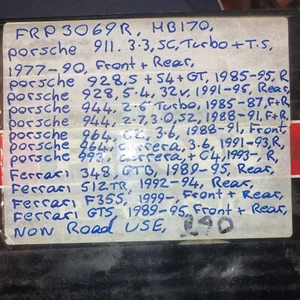 FRP3069R, HB170,
Porsche 911. 3.3, SC, Turbo + T.S,
1977-90, Front + Rear,
Porsche 928,S + S4 + GT, 1985-95, R
Porsche 928, 5.4, 32v, 1991-95, Rear,
Porsche 944, 2.6 Turbo, 1985-87, F+R,
Porsche 944, 2.7, 3.0, S2, 1988-91, F+R,
Porsche 964, C2, 3.6, 1988-91, Front,
Porsche 964, Carrera, 3.6, 1991-93, R,
Porsche 993, Carrera, + C4, 1993-, R,
Ferrari 348, GTB, 1989-95, Rear,
Ferrari 512TR, 1992-94, Rear,
Ferrari F355, 1999-, Front + Rear,
Ferrari GTS, 1989-95, Front + Rear,
Non Road USE, £90